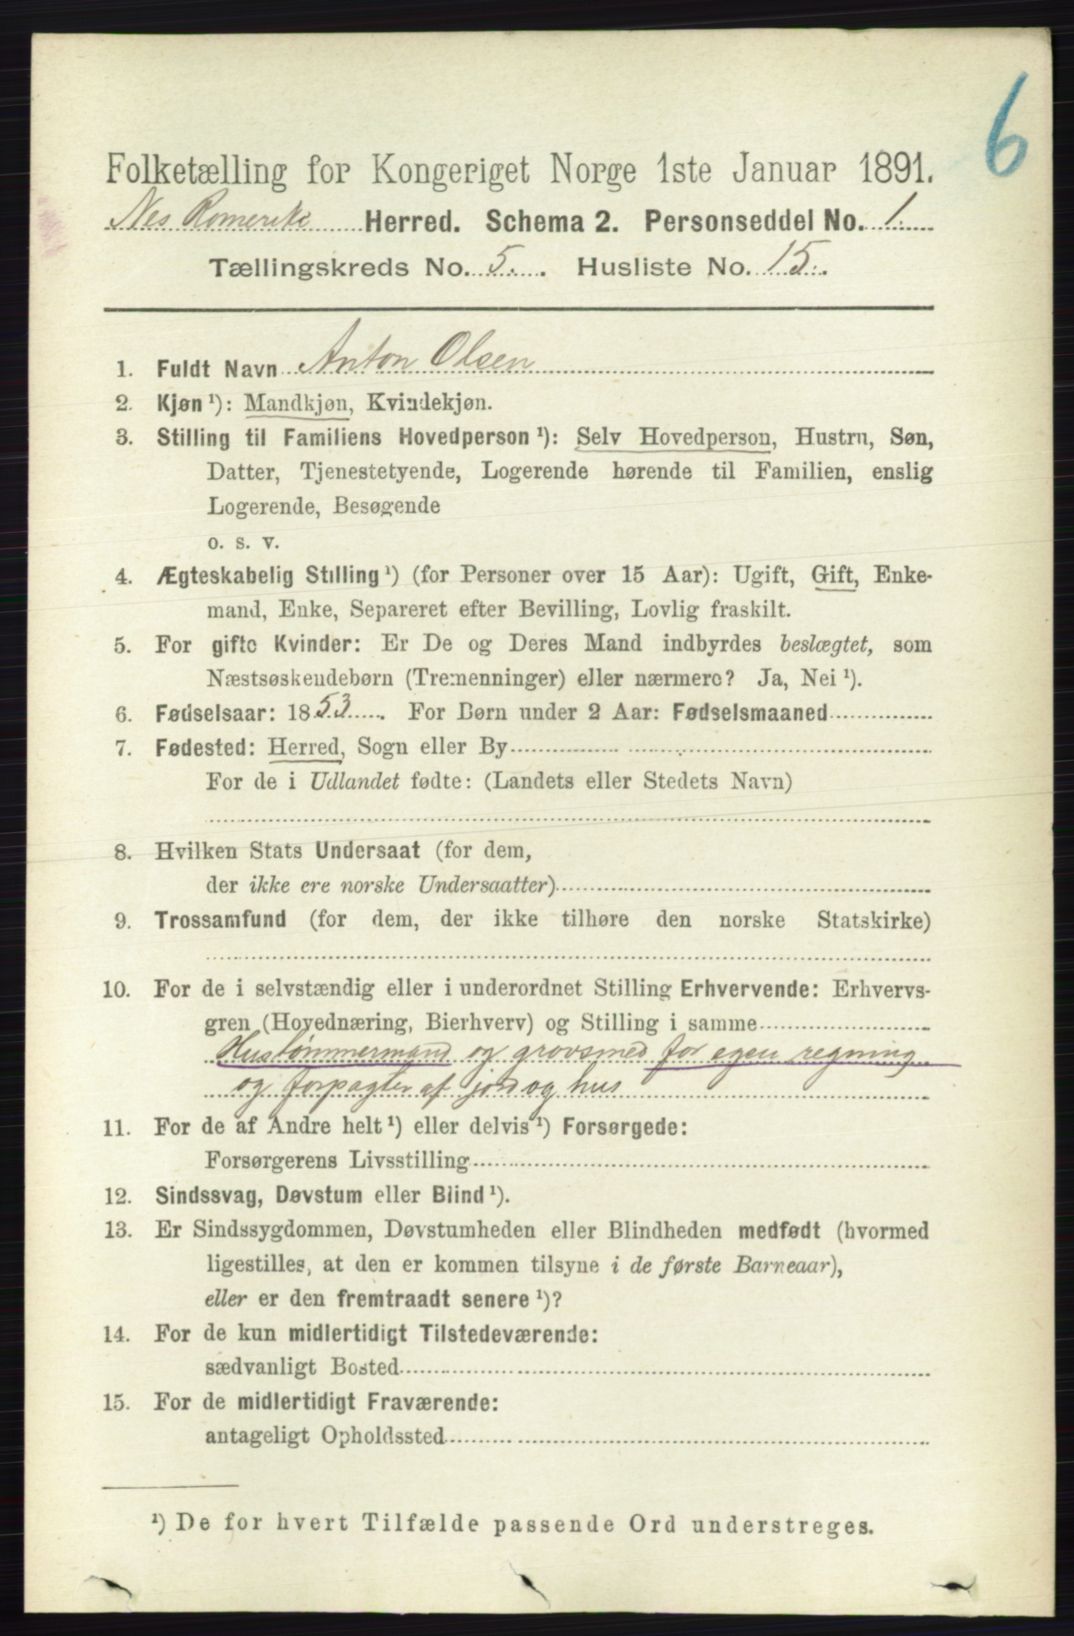 6
Folketælling for Kongeriget Norge 1ste Januar 1891.
Nes Romerike Herred. Schema 2. Personseddel No. 1.
Tællingskreds No. 5. Husliste No. 15.
1. Fuldt Navn Anton Olsen
2. Kjøn ¹): Mandkjøn, Kvindekjøn.
3. Stilling til Familiens Hovedperson ¹): Selv Hovedperson, Hustru, Søn,
Datter, Tjenestetyende, Logerende hørende til Familien, enslig
Logerende, Besøgende
o. s. v.
4. Ægteskabelig Stilling ¹) (for Personer over 15 Aar): Ugift, Gift, Enke-
mand, Enke, Separeret efter Bevilling, Lovlig fraskilt.
5. For gifte Kvinder: Er De og Deres Mand indbyrdes beslægtet, som
Næstsøskendebørn (Tremenninger) eller nærmere? Ja, Nei ¹).
6. Fødselsaar: 1853. For Børn under 2 Aar: Fødselsmaaned
7. Fødested: Herred, Sogn eller By
For de i Udlandet fødte: (Landets eller Stedets Navn)
8. Hvilken Stats Undersaat (for dem,
der ikke ere norske Undersaatter)
9. Trossamfund (for dem, der ikke tilhøre den norske Statskirke)
10. For de i selvstændig eller i underordnet Stilling Erhvervende: Erhvervs-
gren (Hovednæring, Bierhverv) og Stilling i samme
Hustømmermand og grovsmed for egen regning
og forpagter af jord og hus
11. For de af Andre helt ¹) eller delvis ¹) Forsørgede:
Forsørgerens Livsstilling
12. Sindssvag, Døvstum eller Blind ¹).
13. Er Sindssygdommen, Døvstumheden eller Blindheden medfødt (hvormed
ligestilles, at den er kommen tilsyne i de første Barneaar),
eller er den fremtraadt senere ¹)?
14. For de kun midlertidigt Tilstedeværende:
sædvanligt Bosted
15. For de midlertidigt Fraværende:
antageligt Opholdssted
¹) De for hvert Tilfælde passende Ord understreges.